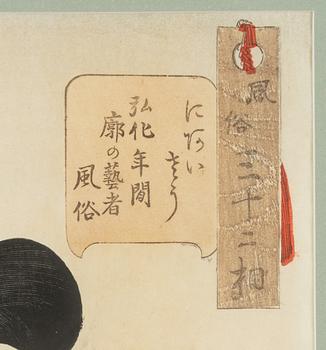 風俗三十二相
にあいさう
弘化年間
廓の藝者
風俗